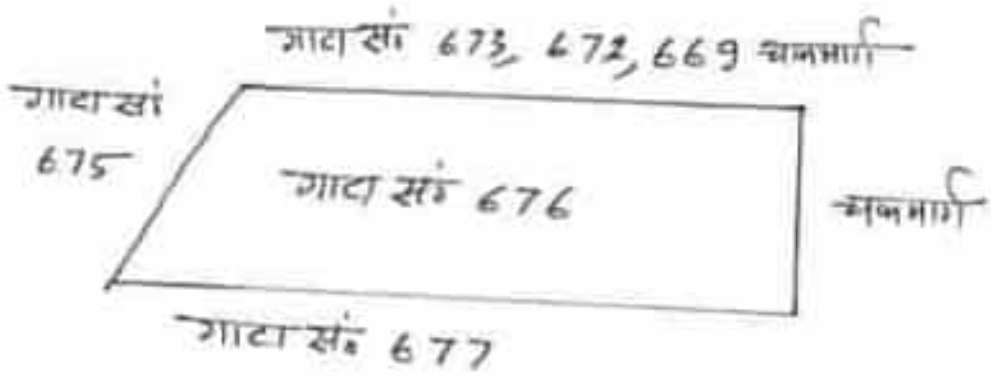 गाटा सं० 673, 672, 669 चकमार्ग
गाटा सं०
675
गाटा सं० 676
चकमार्ग
गाटा सं० 677